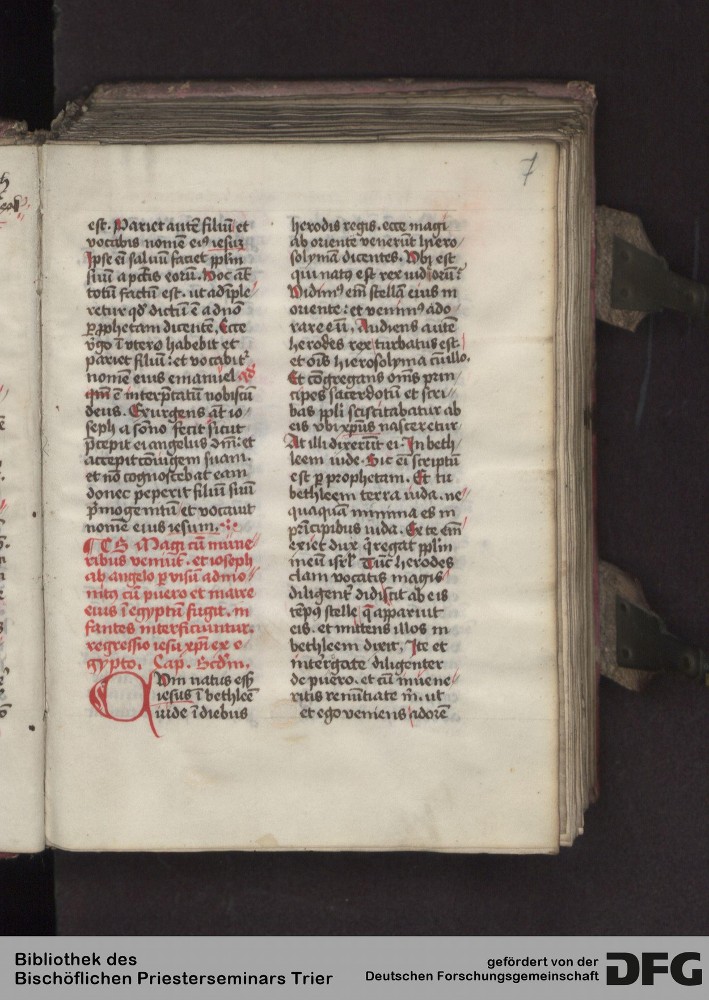 7
est. Pariet autē filiū et
vocabis nomē eiꝰ iesuʒ
Ipse eī saluū faciet pplm
suū a pctīs eorū. Hoc aūt
totū factū est. ut adīple
retur qd' dictū ē a dnō
ꝑ ꝓphetam dicentē. Ecce
v̓go ī vtero habebit et
pariet filiū: et vocabit̉
nomē eius emanuel qd
ē interp̄tatū nobiscū
deus. Exurgens aūt io
seph a sōno fecit sicut
p̄cepit ei angelus dn̄i: et
accepit cōiugem suam.
et nō cognoscebat eam
donec peperit filiū suū
p̄mogenitū et vocauit
nomē eius iesum.
Magi cū mune
ribus veniūt. et ioseph
ab angelo ꝑ visū admo
nitꝰ cū puero et matre
eius ī egyptū fugit. in
fantes interficiuntur.
regressio iesu xp̄i ex e
gypto. Cap. Scdm.
Cum natus ess̄
iesus ī bethleē
iude ī diebus
herodis regis. ecce magi
ab oriente venerūt hiero
solymā dicentes. Vbi est
qui natꝰ est rex iudeorū:
Vidimꝰ em̄ stellā eius in
oriente: et venimꝰ ado
rare eū. Audiens autē
herodes rex turbatus est.
et oīs hierosolyma cū illo.
Et cōgregans om̄s prin
cipes sacerdotū et scri
bas ppli sciscitabatur ab
eis vbi xp̄us nasceretur
At illi dixerūt ei. In beth
leem iude. Sic eī scriptū
est ꝑ prophetam. Et tu
bethleem terra iuda. ne
quaquā minima es in
prīcipibus iuda. Ex te em̄
exiet dux q̄ regat pplm
meū isrl' Tūc herodes
clam vocatis magis
diligent̉ didicit ab eis
tēpꝰ stelle q̄ apparuit
eis. et mittens illos in
bethleem dixit. Ite et
interrogate diligenter
de puero. et cū inuene
ritis renūtiate m̄. ut
et ego veniens adorē
Bibliothek des
Bischöflichen Priesterseminars Trier
gefördert von der
Deutschen Forschungsgemeinschaft
DFG